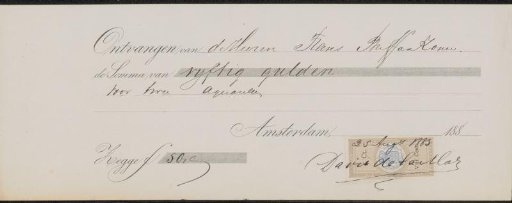 Ontvangen van de Heeren Frans Buffa & Zonen
de Somma van vyftig gulden
voor twee aquarellen
Amsterdam 188
25 Aug 1885
Zegge f 50
David de la Mar